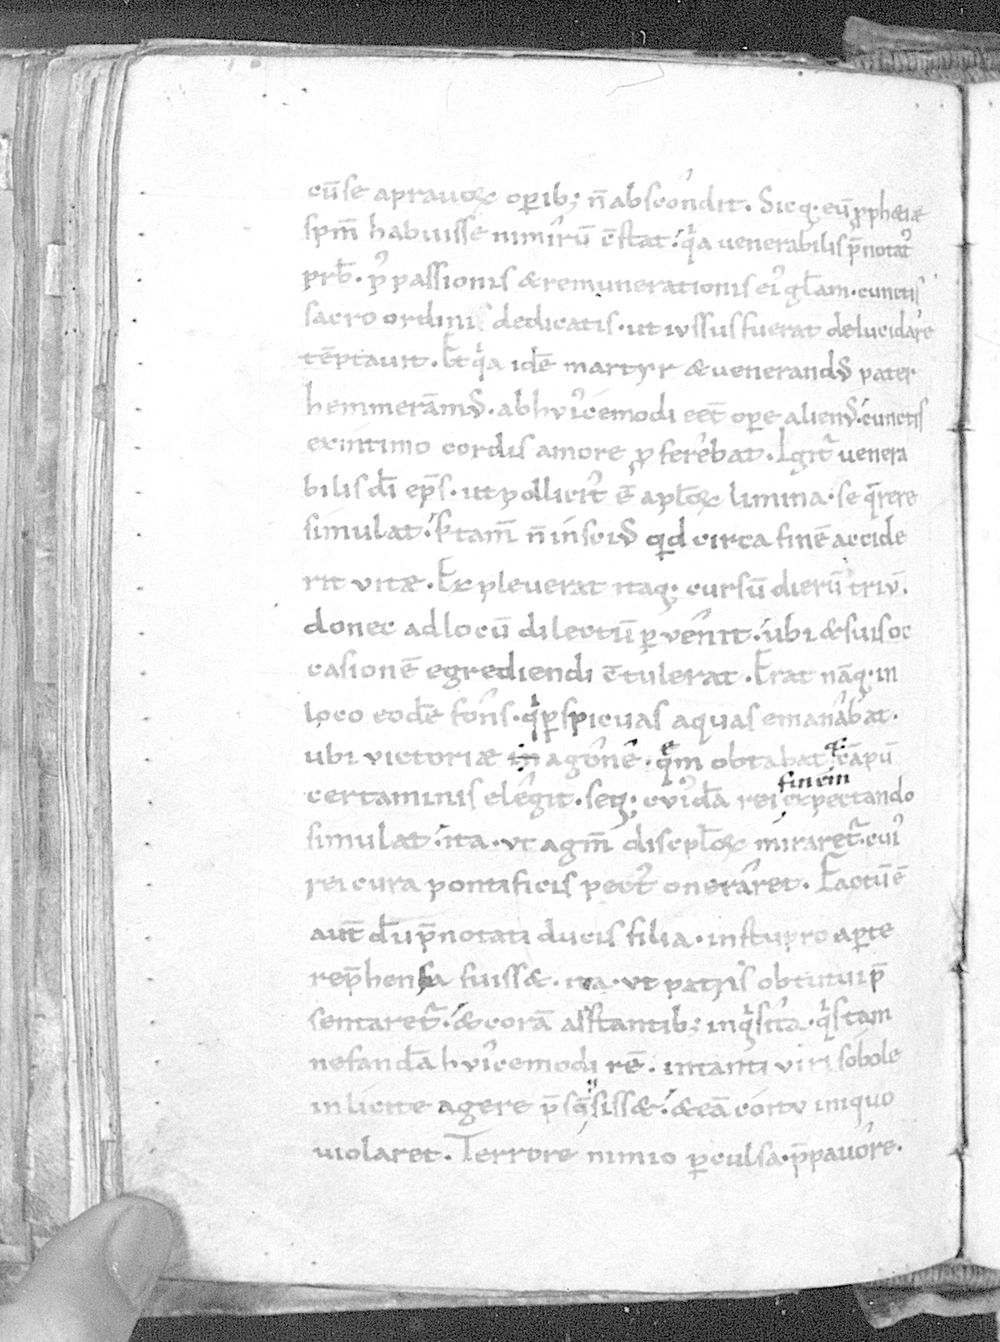 cū se a prauoꝝ oꝑib; n̄ abscondit. Sicq. eū ꝓphetiæ
spm̄ habuisse nimirū c̄stat. qͥa venerabilis p̄notat᷒
prb̄. ꝓ passionis & remunerationis ei᷒ gl̄am. cunctis
sacro ordini dedicatis. ut iussus fuerat delucidare
tēptauit. Et qͥa idē martyr & venerand᷒ pater
hemmerām᷒. ab hui᷒cemodi eēt oꝑe alien᷒. cunctis
ex intimo cordis amore ꝓferebat. Igit᷑ venera
bilis dī ep̄s. ut pollicit᷒ ē apl̄oꝝ limina. se q̄rere
simulat. s; tam̄ n̄ inscius qͥd circa finē accide
rit vitæ. Expleuerat itaq. cursū dierū triū.
donec ad locū dilectū ꝑvenit. ubi & suis oc
casionē egrediendi c̄tulerat. Erat nāq. in
loco eodē fons. qͥ ꝑspicuas aquas emanabat.
ubi victoriæ in agonē. quem obtabat & cāpū
certaminis elegit. seq; cui᷒dā rei finem expectando
simulat. ita. ut agm̄ discipl̄oꝝ miraret᷑. cui᷒
rei cura pontificis pect᷒ oneraret. Factū ē
aut̄ dū p̄notati ducis filia. in stupro aꝑte
rep̄hensa fuiss&. ita. ut patris obtutui p̄
sentaret᷑. & corā astantib; inqͥsita. qͥs tam
nefandā hui᷒cemodi rē. in tanti viri sobole
inlicite agere p̄sūpsiss&. & eā coitu iniquo
violaret. Terrore nimio ꝑculsa. p̄ pauore.